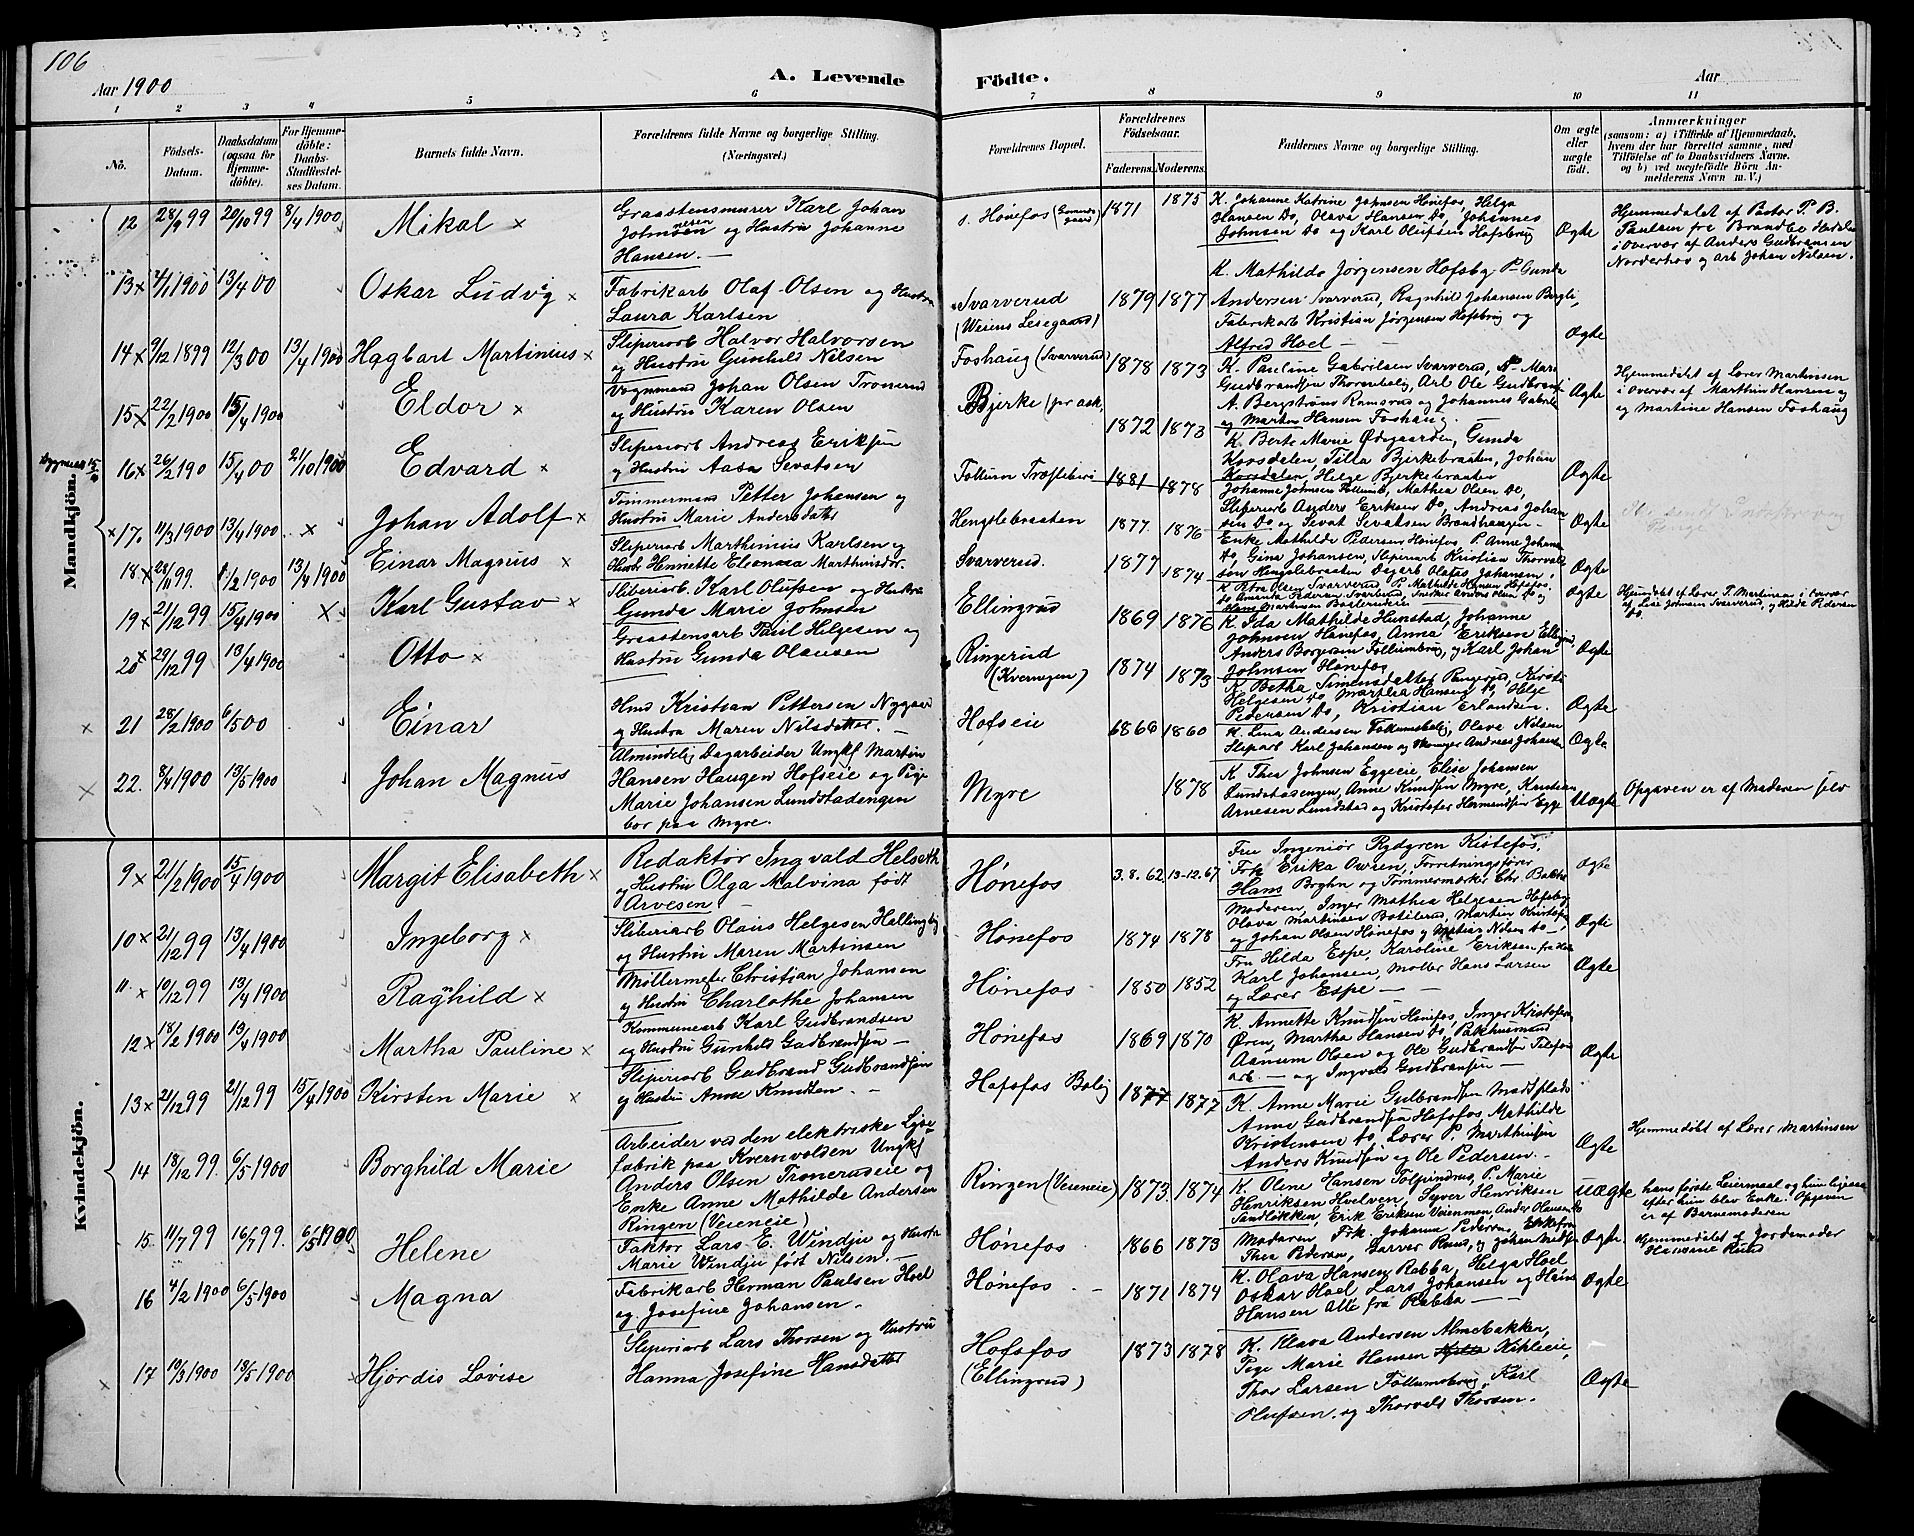 106
Aar 1900
A. Levende Födte.
Aar
1 2 3 4 5 6 7 8 9 10 11
No.
Födsels-Datum.
Daabsdatum (ogsaa for Hjemme-döbte).
For Hjemme-döbte: Daabs-Stadfæstel-ses Datum.
Barnets fulde Navn.
Forældrenes fulde Navne og borgerlige Stilling.
(Næringsvei.)
Forældrenes Bopæl.
Forældrenes Födselsaar.
Faderens. Moderens.
Faddernes Navne og borgerlige Stilling.
Om ægte eller uægte födt.
Anmærkninger
(saasom: a) i Tilfælde af Hjemmedaab, hvem der har forrettet samme, med Tilföielse af to Daabsvidners Navne, og b) ved uægtefödte Börn An-melderens Navn m. V.)
Mandkjön.
12 28/9 99 20/10 99 8/4 1900 Mikal ×
Graastensmurer Karl Johan
Johnsen og Hustru Johanne
Hansen. —
s. Hönefos 1871 1875
K. Johanne Katrine Johnsen Hönefos, Helga
Hansen Do, Olava Hansen Do, Johannes
Johnsen Do og Karl Olufsen Hofsbrug
Ægte
Hjemmedöbt af Pastor P. B.
Paulsen fra Brandbo Hedalen
i Overvær af Anders Gudbransen
Norderhov og Arb Johan Nilsen.
13 × 4/1 1900 13/4 00 Oskar Ludvig ×
Fabrikarb Olaf Olsen og Hustru
Laura Karlsen
Svarverud
(Veiens Leiegaard)
1879 1877
K. Mathilde Jörgensen Hofsby P. Gunda
Andersen Svarverud, Ragnhild Johansen Bergli,
Fabrikarb Kristian Jörgensen Hofsbrug og
Alfred Hoel —
Ægte
14 × 9/12 1899 12/3 00 13/4 1900 Hagbart Martinius ×
Sliperiarb Halvor Halvorsen
og Hustru Gunhild Nilsen
Foshaug (Svarverud) 1878 1873
K. Pauline Gabrielsen Svarverud, P. Mari
Gudbrandsen, Arb Ole Gudbrands
Ægte
Hjemmedöbt af Lærer Martinsen
i Overvær af Marthin Hansen og
og Martine Hansen Foshaug
15 × 22/2 1900 15/4 1900 Eldor ×
Vognmand Johan Olsen Tronrud
og Hustru Karen Olsen
Bjerke (pr ask, 1872 1873
A. Bergström Ramsrud og Johannes Gabriels
og Marten Hansen Foshaug.
16 × 26/2 190 15/4 00 21/10 1900 Edvard ×
Sliperiarb Andreas Eriksen
og Hustru Aasa Sevatsen
Follum Træsliberi 1881 1878
K. Berte Marie Ödegaarden, Gunda
Korsdalen, Tilla Bjerkebraaten, Johan
Korsdalen, Helge Bjerkebraaten
Ægte
× 17. 11/3 1900 13/4 1900 × Johan Adolf ×
Tömmermand Petter Johansen og
Hustru Marie Andersdatter
Hengslebraaten 1877 1876
Johanne Johnsen Follumb, Mathea Olsen Do,
Sliperiarb Anders Eriksen Do, Andreas Johan
sen Do og Sevat Sevatsen Brandhaugen —
Ægte
18 × 1/2 1900 13/4 1900 Einar Magnus ×
Sliperiarb Marthinius Karlsen og
Hustr Hennette Eleonora Marthinsdtr.
Svarverud. 1877 1874
Enke Mathilde Pedersen Hönefos, P. Anne Johans
Do, Gina Johansen, Sliperiarb Kristian Thorvald
sen Hengslebraaten Johansen.
Ægte
19 × 21/12 99 15/4 1900 × Karl Gustav ×
Sliberiarb Karl Olufsen og Hustru
Gunda Marie Johnsen
Ellingrud 1869 1876
K Petra Olsen Svarverud, P. Mathilde Hansen Hönefos,
Ægte
Hjemdöbt af Lærer P. Martinsen i Overvær
Do.
20 × 29/12 99 13/4 1900 Otto ×
Graastensarb Paul Helgesen og
Hustru Gunda Olausen
Ringerud
(Kvernegen)
1874 1873
K. Ida Mathilde Hunstad, Johanne
Johnsen Hönefos, Anna Eriksen Ellingrud,
Anders Borgersen Follumbrug, og Karl Johan
Johnsen Hönefos
Ægte
× 21 28/2 1900 6/5 00 Einar
Hmd Kristian Pettersen Nygaard
og Hustru Maren Nilsdatter. —
Hofseie 1866 1860
K Betha Simensdatter, Kirsti
Helgesen Do, Marthea Hansen Do, Helge
Pedersen Do, Kristian Erlandsen.
Ægte
K. Lina Andersen Follumsbolig, Olava Nilsen
Sliparb Karl Johansen og Andreas Johansen
Ægte
× 22. 8/4 1900 13/5 1900 Johan Magnus
Almindelig Dagarbeider Ungkf Martin
Hansen Haugen Hofseie og Pige
Marie Johansen Lundstadengen
bor paa Myre.
Myre 1878
K Thea Johnsen Eggeeie, Elise Johansen
Lundstadengen, Anne Knudsen Myre, Kristian
Arnesen Lundstad og Kristofer Hermundsen Egge
Uægte
Opgaven er af Moderen selv
Kvindekjön.
9 × 21/2 1900 15/4 1900 Margit Elisabeth ×
Redaktør Ingvald Helseth
og Hustru Olga Malvina født
Arvesen. —
Hönefos 3.8.62 13-12.67
Fru Ingeniør Rydgren Kistefos,
Frk Erika Owren, Forretningsfører
Hans Brghn og Tömmermærker Chr. Bakke
Ægte
10 × 21/12 99 13/4 1900 Ingeborg ×
Sliberiarb Olaus Helgesen Hallingby
og Hustru Maren Martinsen
Hönefos 1874 1878
Moderen, Inger Mathea Helgesen Hofsbrug
Olava Martinsen Botilrud, Martin Kristofers
og Johan Olsen Hönefos og Matias Nilsen Do —
Ægte
11. × 10/12 99 13/4 1900 Raghild ×
Møllermest Christian Johansen
og Hustru Charlothe Johansen
Hönefos 1850 1852
Fru Hilda Espe, Karoline Eriksen,
Karl Johansen, Möller Hans Larsen
og Lærer Espe —
Ægte
12 × 18/2 1900 13/4 1900 Martha Pauline ×
Kommunearb Karl Gudbrandsen
og Hustru Gunhild Gudbrandsen —
Hönefos 1869 1870
K. Annette Knudsen Hönefos, Inger Kristofers
Ören, Martha Hansen Do, Pakhusmand
Aanum Olsen og Ole Gudbrandsen Telefon
arb. — og Ingvald Gudbransen —
Ægte
13 × 21/12 99 21/12 99 15/4 1900 Kirsten Marie ×
Sliperiarb Gudbrand Gudbrandsen
og Hustru Anne Knudsen —
Hofsfos Bolig 1877 1877
K. Anne Marie Gulbrandsen Madsplads
Anne Gudbrandsen Hofsfos, Mathilde
Kristensen Do, Lærer P. Marthinsen
Anders Knudsen og Ole Pedersen. —
Ægte
Hjemmedöbt af Lærer Martinsen
14 18/12 99. 6/5 1900 Borghild Marie
Arbeider ved den elektriske Lyse-
fabrik paa Kvernvolden Ungkf
Anders Olsen Tronerudeie og
Enke Anne Mathilde Andersen
Ringen (Veieneie)
Ringen (Veieneie) 1873 1874
K. Oline Hansen, P. Marie
Henriksen Hvelven, Syver Henriksen
Sandløkken, Erik Eriksen Veienmoen
Uægte
hans förste Leiermaal og hun ligesaa
efter hun blev Enke. Opgaven
er af Barnemoderen
15 11/7 99 16/7 99. 6/5 1900 Helene
Faktor Lars E. Windju og Hustru
Marie Windju født Nilsen. —
Hönefos 1866 1873
Moderen, Frk. Johanne Pedersen,
Thea Pedersen, Garver Ruud, og
Ægte
Hjemmedöbt af Jordemoder
Hansine Ruud
16 4/2 1900 6/5 1900 Magna
Fabrikarb Herman Paulsen Hoel
og Josefine Johansen.
Hönefos — 1871 1874
K. Olava Hansen Rabba, Helga Hoel
Oskar Hoel Lars Johansen og Hans
Hansen alle fra Rabba —
Ægte
× 17 10/3 1900 13/5 1900 Hjördis Lovise
Sliperiarb Lars Thorsen og Hustru
Hanna Josefine Hansdatter
Hofsfos
(Ellingrud)
1873 1878
K. Klava Andersen Almebakken,
Pige Marie Hansen Kihleeie,
Thor Larsen Follumsbrug, Karl
Olufsen. og Thorvald Thorsen.
Ægte